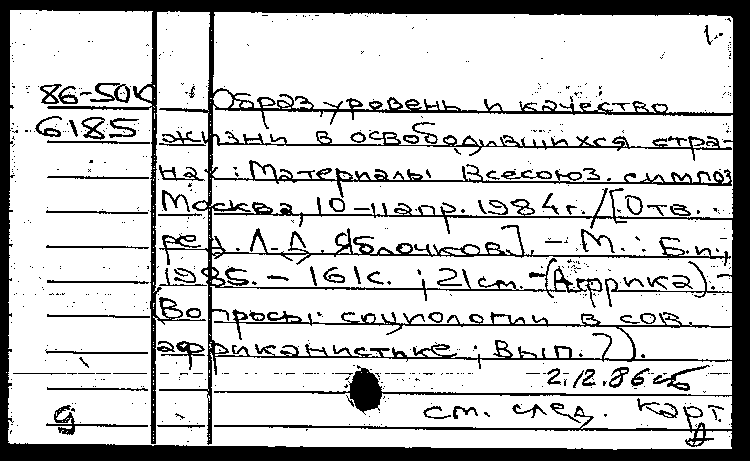 1.
86-50К Образ, уровень и качество
6185 жизни в освободившихся стра-
нах: Материалы Всесоюз. симпоз
Москва, 10-11 апр. 1984 г. / [Отв.
ред. Л. Д. Яблочков]. - М. : Б.и.,
1985. - 161с. ; 21 см. - (Африка). -
(Вопросы социологии в сов.
африканистике ; Вып. 7).
2.12.86
см. след. карт